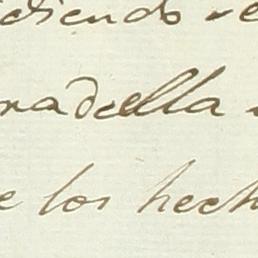 iciendo
nadella
e los hech